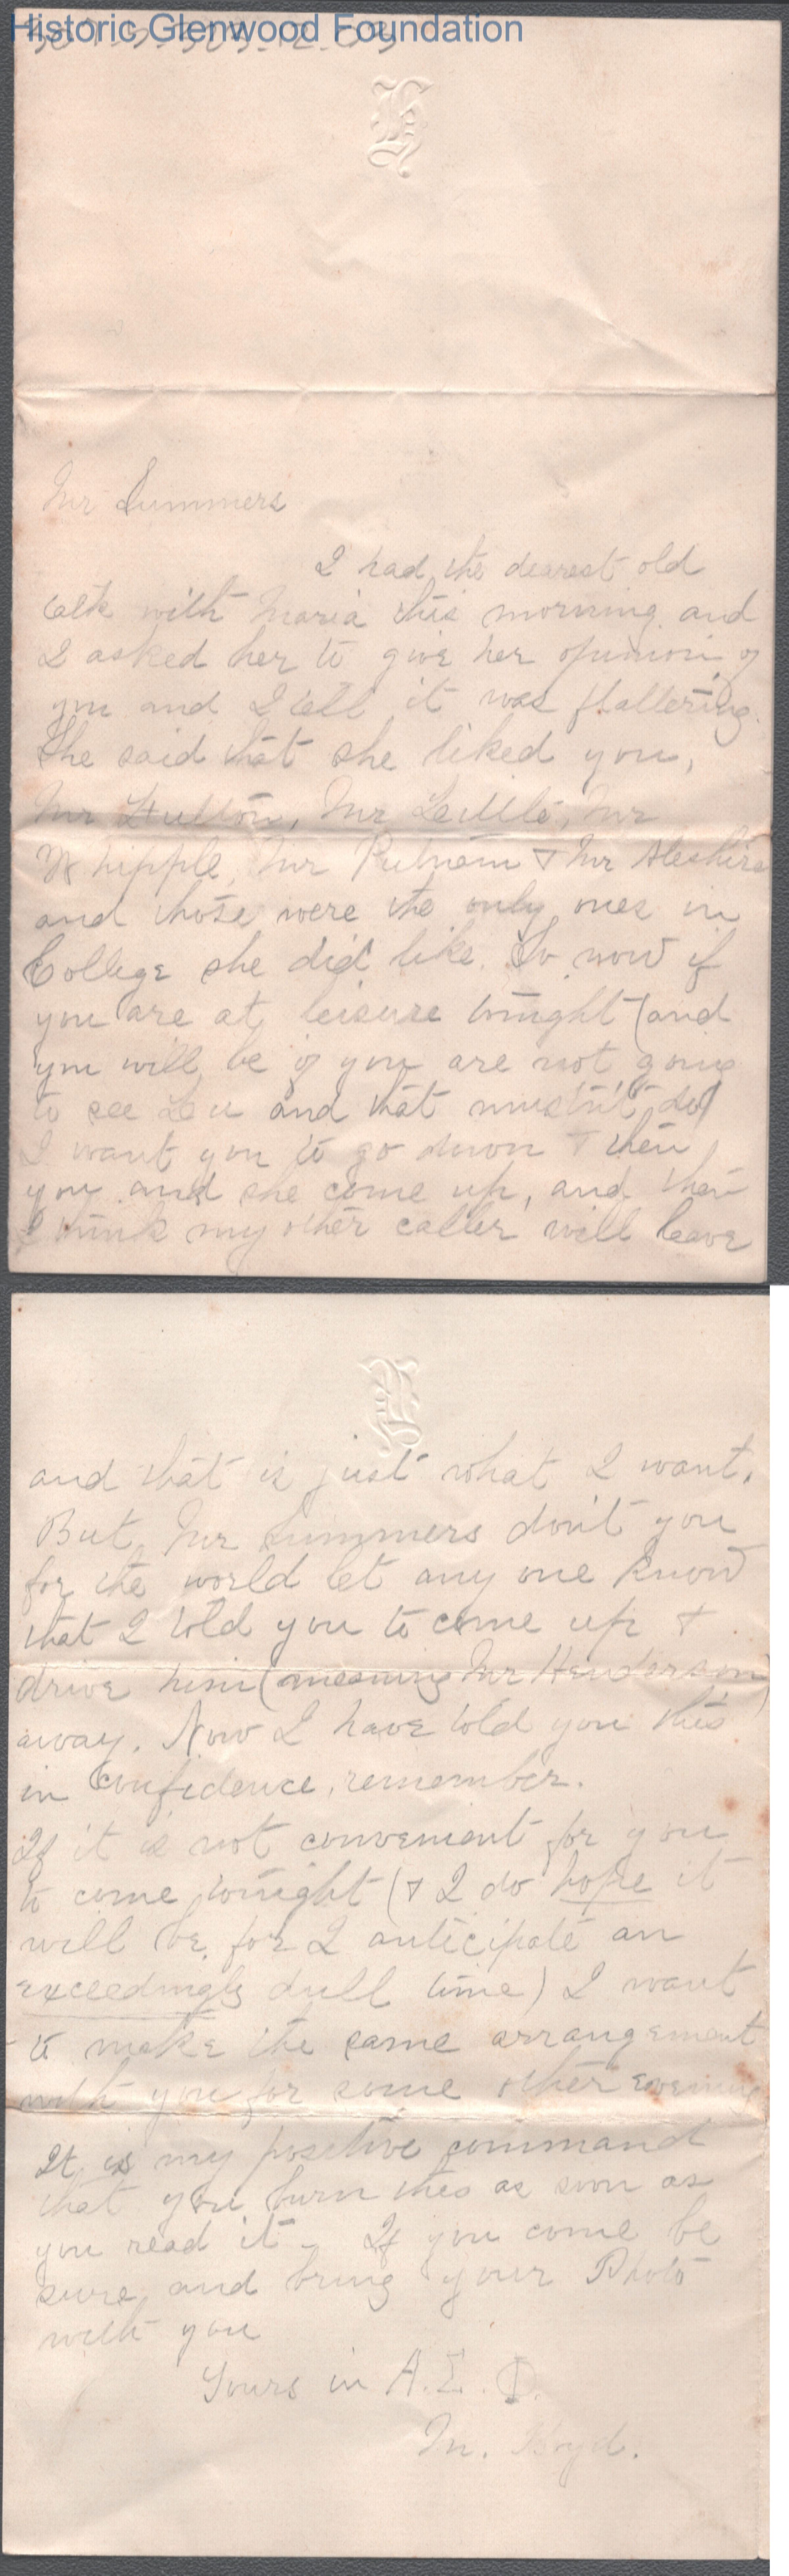 Historic Glenwood Foundation
Mr Summers
I had the dearest old
talk with Maria this morning and
I asked her to give her opinion of
you and I tell it was flattering.
She said that she liked you,
Mr Hutton, Mr Mr
Whipple, Mr Putnam & Mr Aleshire
and those were the only ones in
College she did like. So now if
you are at leisure tonight (and
you will be if you are not going
to see Lu and that mustn't do)
I want you to go down & then
you and she come up, and then
I think my other caller will leave
and that is just what I want.
But, Mr Summers don't you
for the world let any one know
that I told you to come up &
drive him (meaning Mr Henderson)
away. Now I have told you this
in confidence, remember.
If it is not convenient for you
to come tonight (& I do hope it
will be, for I anticipate an
exceedingly dull time) I want
to make the same arrangement
with you for some other evening
It is my positive command
that you burn this as soon as
you read it - If you come be
sure and bring your Photo
with you
Yours in A.Σ.Φ.
M. Boyd.